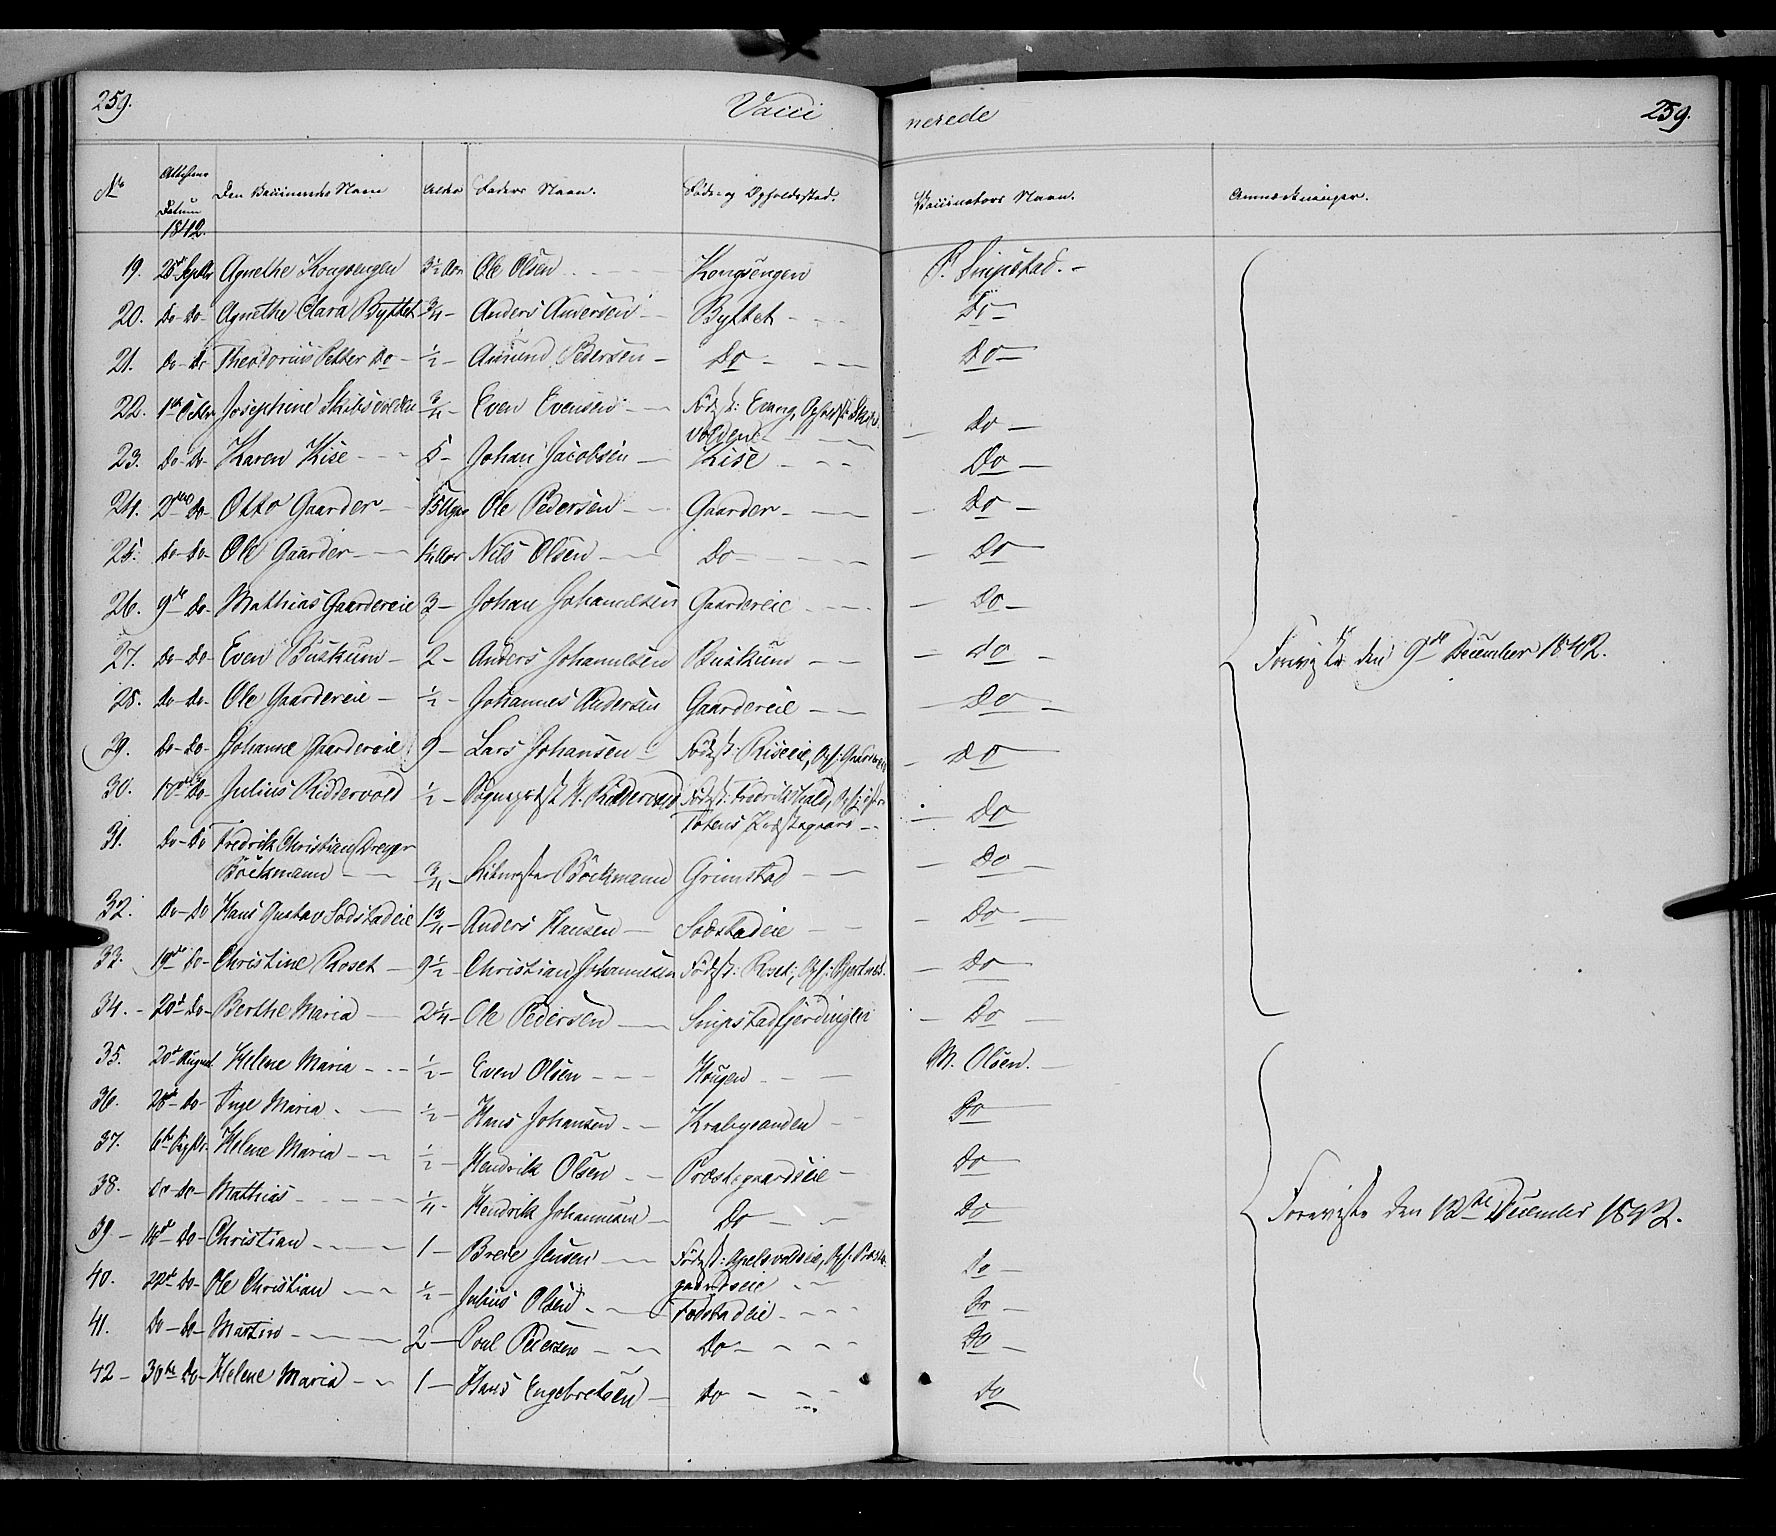 259. Vacci nerede 259.
No Attestens Datum 1842. Den Vaccineredes Navn Alder Faders Navn. Føde- og Opholdssted. Vaccinators Navn. Anmærkninger.
19. 25d Septbr Agnethe Kongsengen 3½ Aar Ole Olsen Kongsengen P. Snipstad.
20. Do Do Agnethe Clara Byttet ¾ Anders Andersen Byttet Do
21. Do Do Theodorius Petter Do ½ Amund Pedersen Do Do
22. 1ste Octbr Josephine ¾ Even Evensen Fødst: Evang, Opholdst:
volden Do
23. Do Do Karen Kise 5 Johan Jacobsen Kise Do
24. 2den Do Otto Gaarder 15 Uger Ole Pedersen Gaarder Do
25. Do Do Ole Gaarder Aar Nils Olsen Do Do
26. 9de Do Mathias Gaardereie 3 Johan Johannesen Gaardereie Do
27. Do Do Even Buskum 2 Anders Johannesen Buskum Do Foreviste den 9de December 1842.
28. Do Do Ole Gaardereie ½ Johannes Andersen Gaardereie Do
29. Do Do Johanne Gaardereie 9 Lars Johansen Fødst: Riseeie, Opf: Gaardereie Do
30. 17de Do Julius Riddervold ½ Sognepræst H. Riddervold Fødst: Fredrikshald,
Totens Præstegaard Do
31. Do Do Fredrik Christian Dreyer
Böckmann ¾ Böckmann Grimstad Do
32. Do Do Hans Gustav Sodstadeie 1¾ Anders Hansen Sodstadeie Do
33. 19de Do Christine Roset 9½ Christian Johannesen Fødst: Roset; Opf: Do
34. 20d Do Berthe Maria 2¼ Ole Pedersen Snipstadfjerdingen Do
35. 20d August Helene Maria ½ Even Olsen Hougen M. Olsen.
36. 28d Do Inge Maria ½ Hans Johansen Krabyeanden Do
37. 6te Septbr. Helene Maria ½ Hendrik Olsen Præstegaardseie Do
38. Do Do Mathias ¼ Hendrik Johannesen Do Do Foreviste den 12te December 1842.
39 14d Do Christian 1 Brede Jensen Fødst: Apelsvoldeie, Opf: Præste-
gaardseie Do
40. 22d Do Ole Christian ½ Julius Olsen Fodstadeie Do
41. Do Do Martin 2 Poul Pedersen Do Do
42 30te Do Helene Maria 1 Hans Engebretsen Do Do